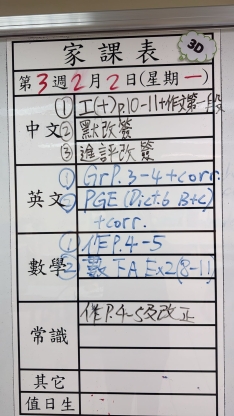 家課表
3D
第3週2月2日(星期一)
中文
① 工(十)p.10-11+作文第一段
② 默改簽
③ 進評改簽
英文
① GrP.3-4+corr.
② PGE (Dict.6 B+C)
+corr.
數學
① 作P.4-5
② 數下A Ex2(8-11)
常識
作P.4-5及改正
其它
值日生